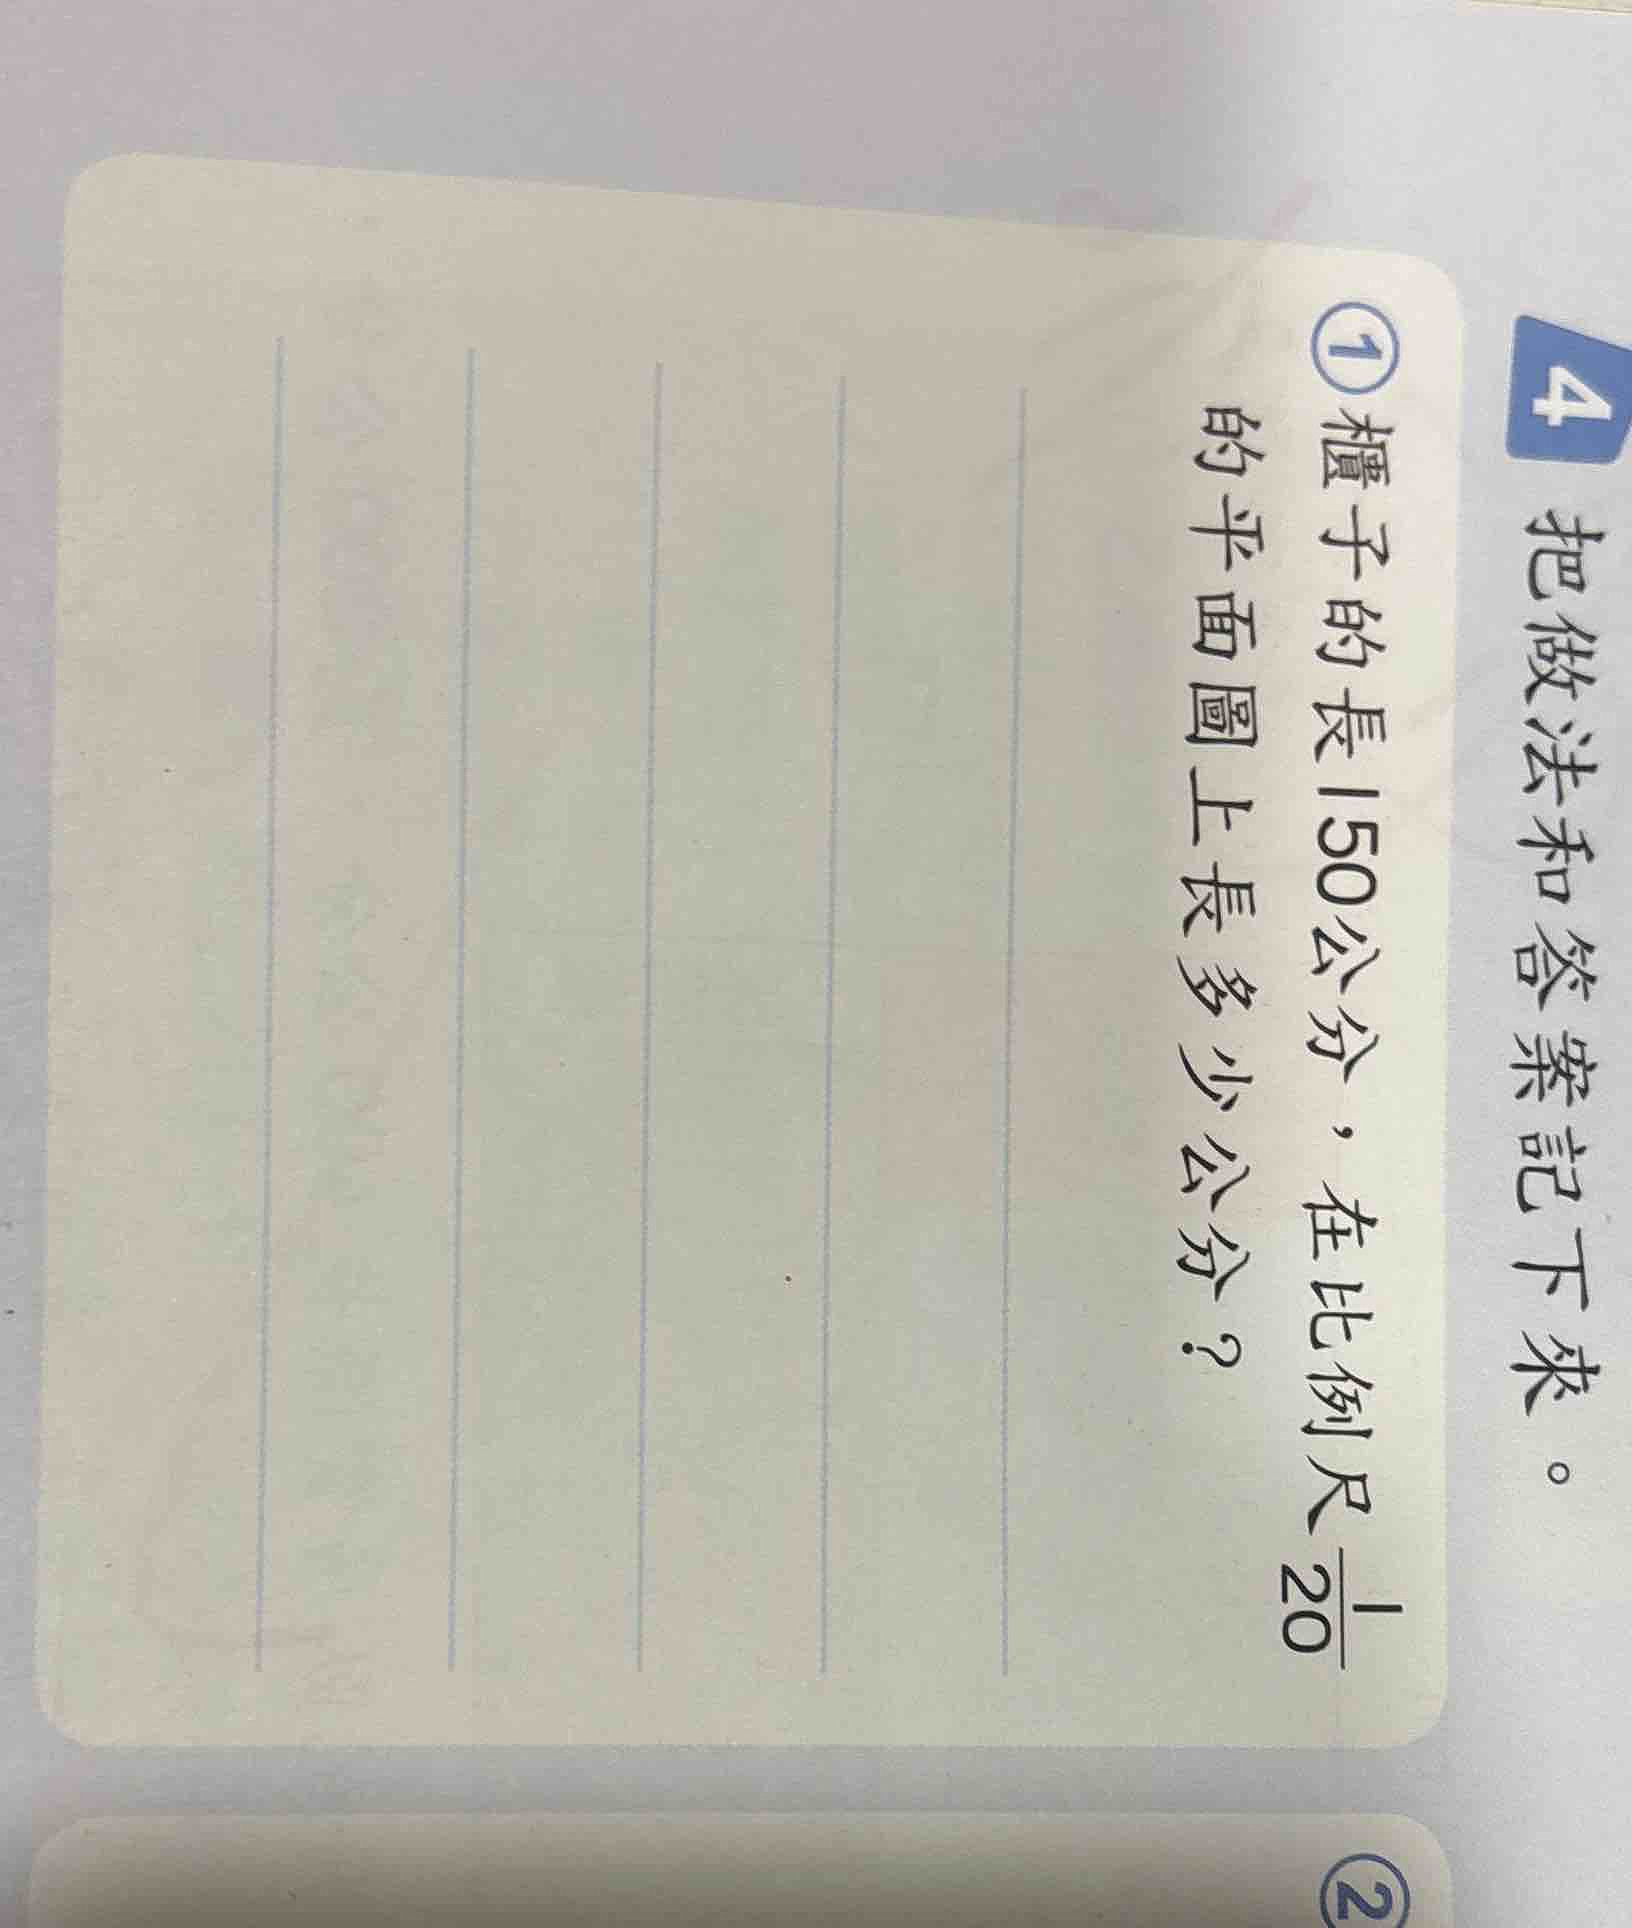 4 把做法和答案記下來。
①櫃子的長150公分，在比例尺1/20
的平面圖上長多少公分？
②